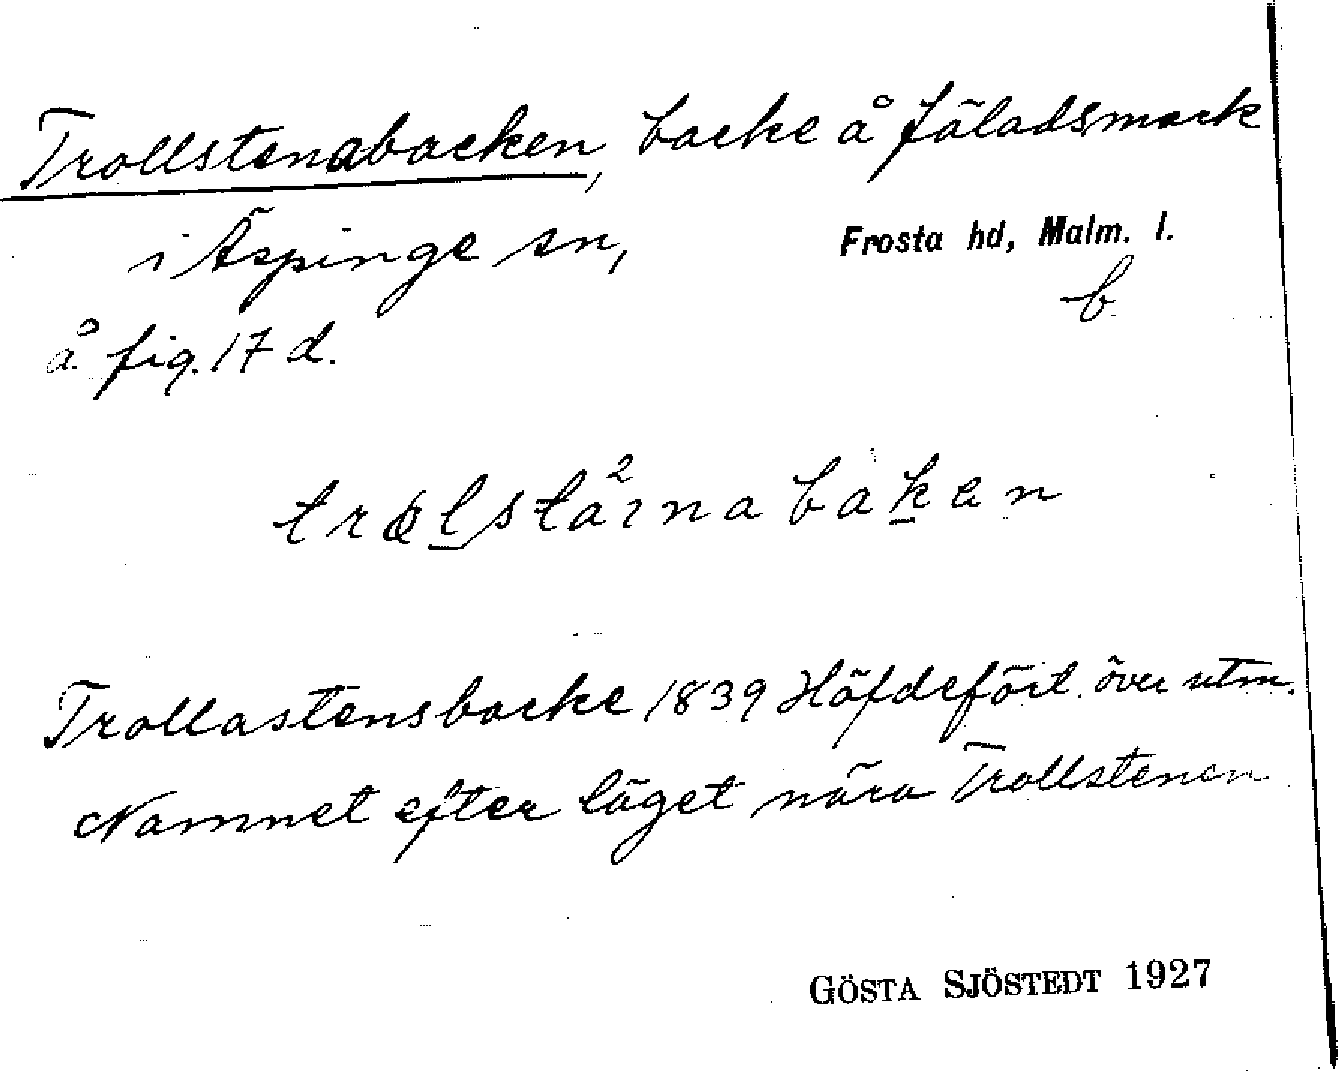 Trollstenabacken, backe å fäladsmark
i Äspinge sn, Frosta hd, Malm. l.
b
å fig. 17 d.
Trollastensbacke 1839 Höfdeförl. över utm.
Namnet efter läget nära Trollstenen
GÖSTA SJÖSTEDT 1927